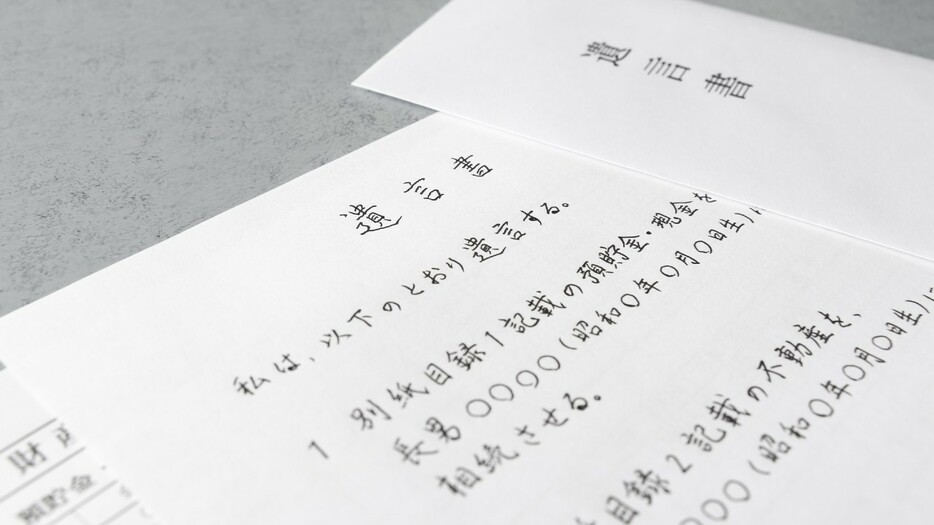 遺言書
遺言書
私は、以下のとおり遺言する。
1 別紙目録1記載の預貯金・現金を
長男〇〇〇〇(昭和〇年〇月〇日生)に
相続させる。
目録2記載の不動産を、
〇〇〇(昭和〇年〇月〇日生)に
財産
預貯金